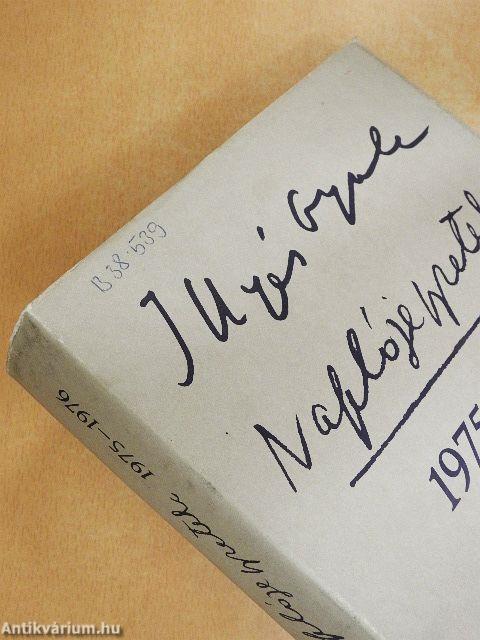 B38.539
Illyés Gyula
Naplójegyzetek
1975
Naplójegyzetek 1975–1976
Antikvárium.hu